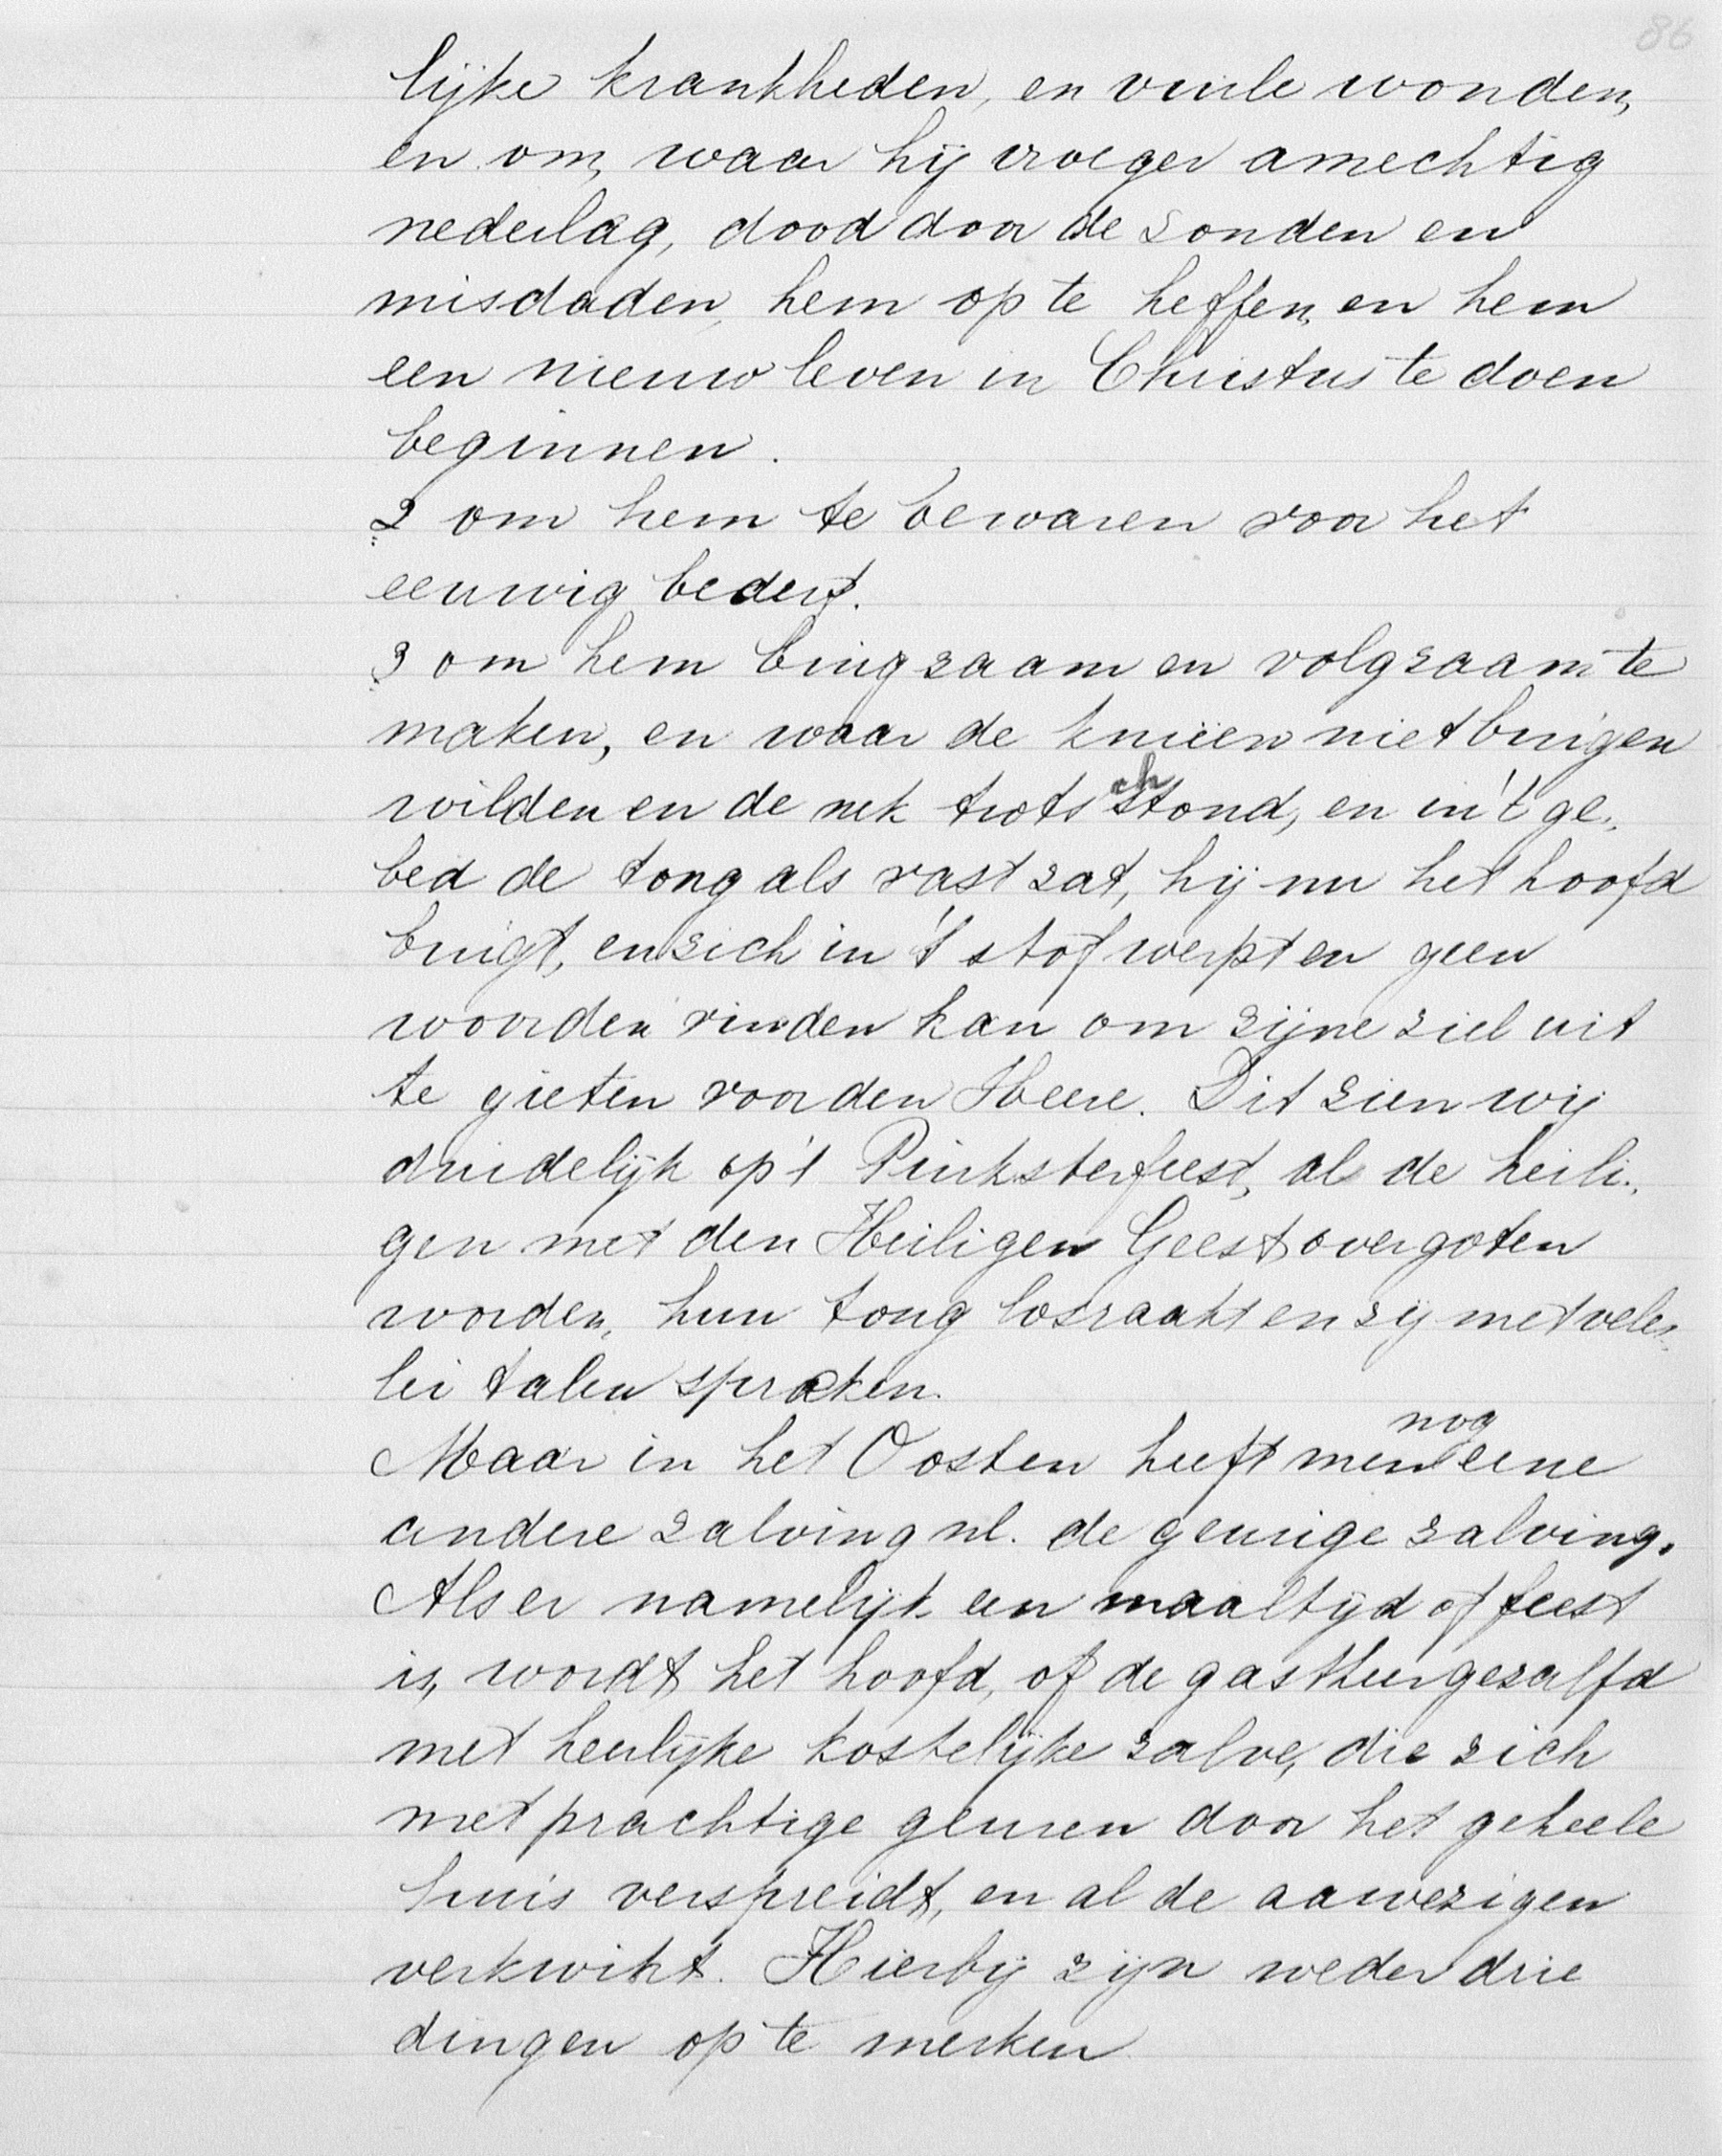 86
lijke krankheden, en vuile wonden,
en om, waar hij vroeger amechtig
nederlag, dood door de zonden en
misdaden, hem op te heffen, en hem
een nieuw leven in Christus te doen
beginnen.
2 om hem te bewaren voor het
eeuwig bederf.
3 om hem buigzaam en volgzaam te
maken, en waar de knieën niet buigen
wilden en de nek trotsch stond, en in 't ge-
bed de tong als vast zat, hij nu het hoofd
buigt, en zich in 't stof werpt en geen
woorden vinden kan om zijne ziel uit
te gieten voor den Heere. Dit zien wij
duidelijk op 't Pinksterfeest, als de heili-
gen met den Heiligen Geest overgoten
worden, hun tong losraakt en zij met veler-
lei talen spraken.
Maar in het Oosten heeft men nog eene
andere zalving nl. de geurige zalving.
Als er namelijk een maaltijd of feest
is, wordt het hoofd, of de gastheer gezalfd
met heerlijke kostelijke zalve, die zich
met prachtige geuren door het geheele
huis verspreidt, en al de aawezigen
verkwikt. Hierbij zijn weder drie
dingen op te merken